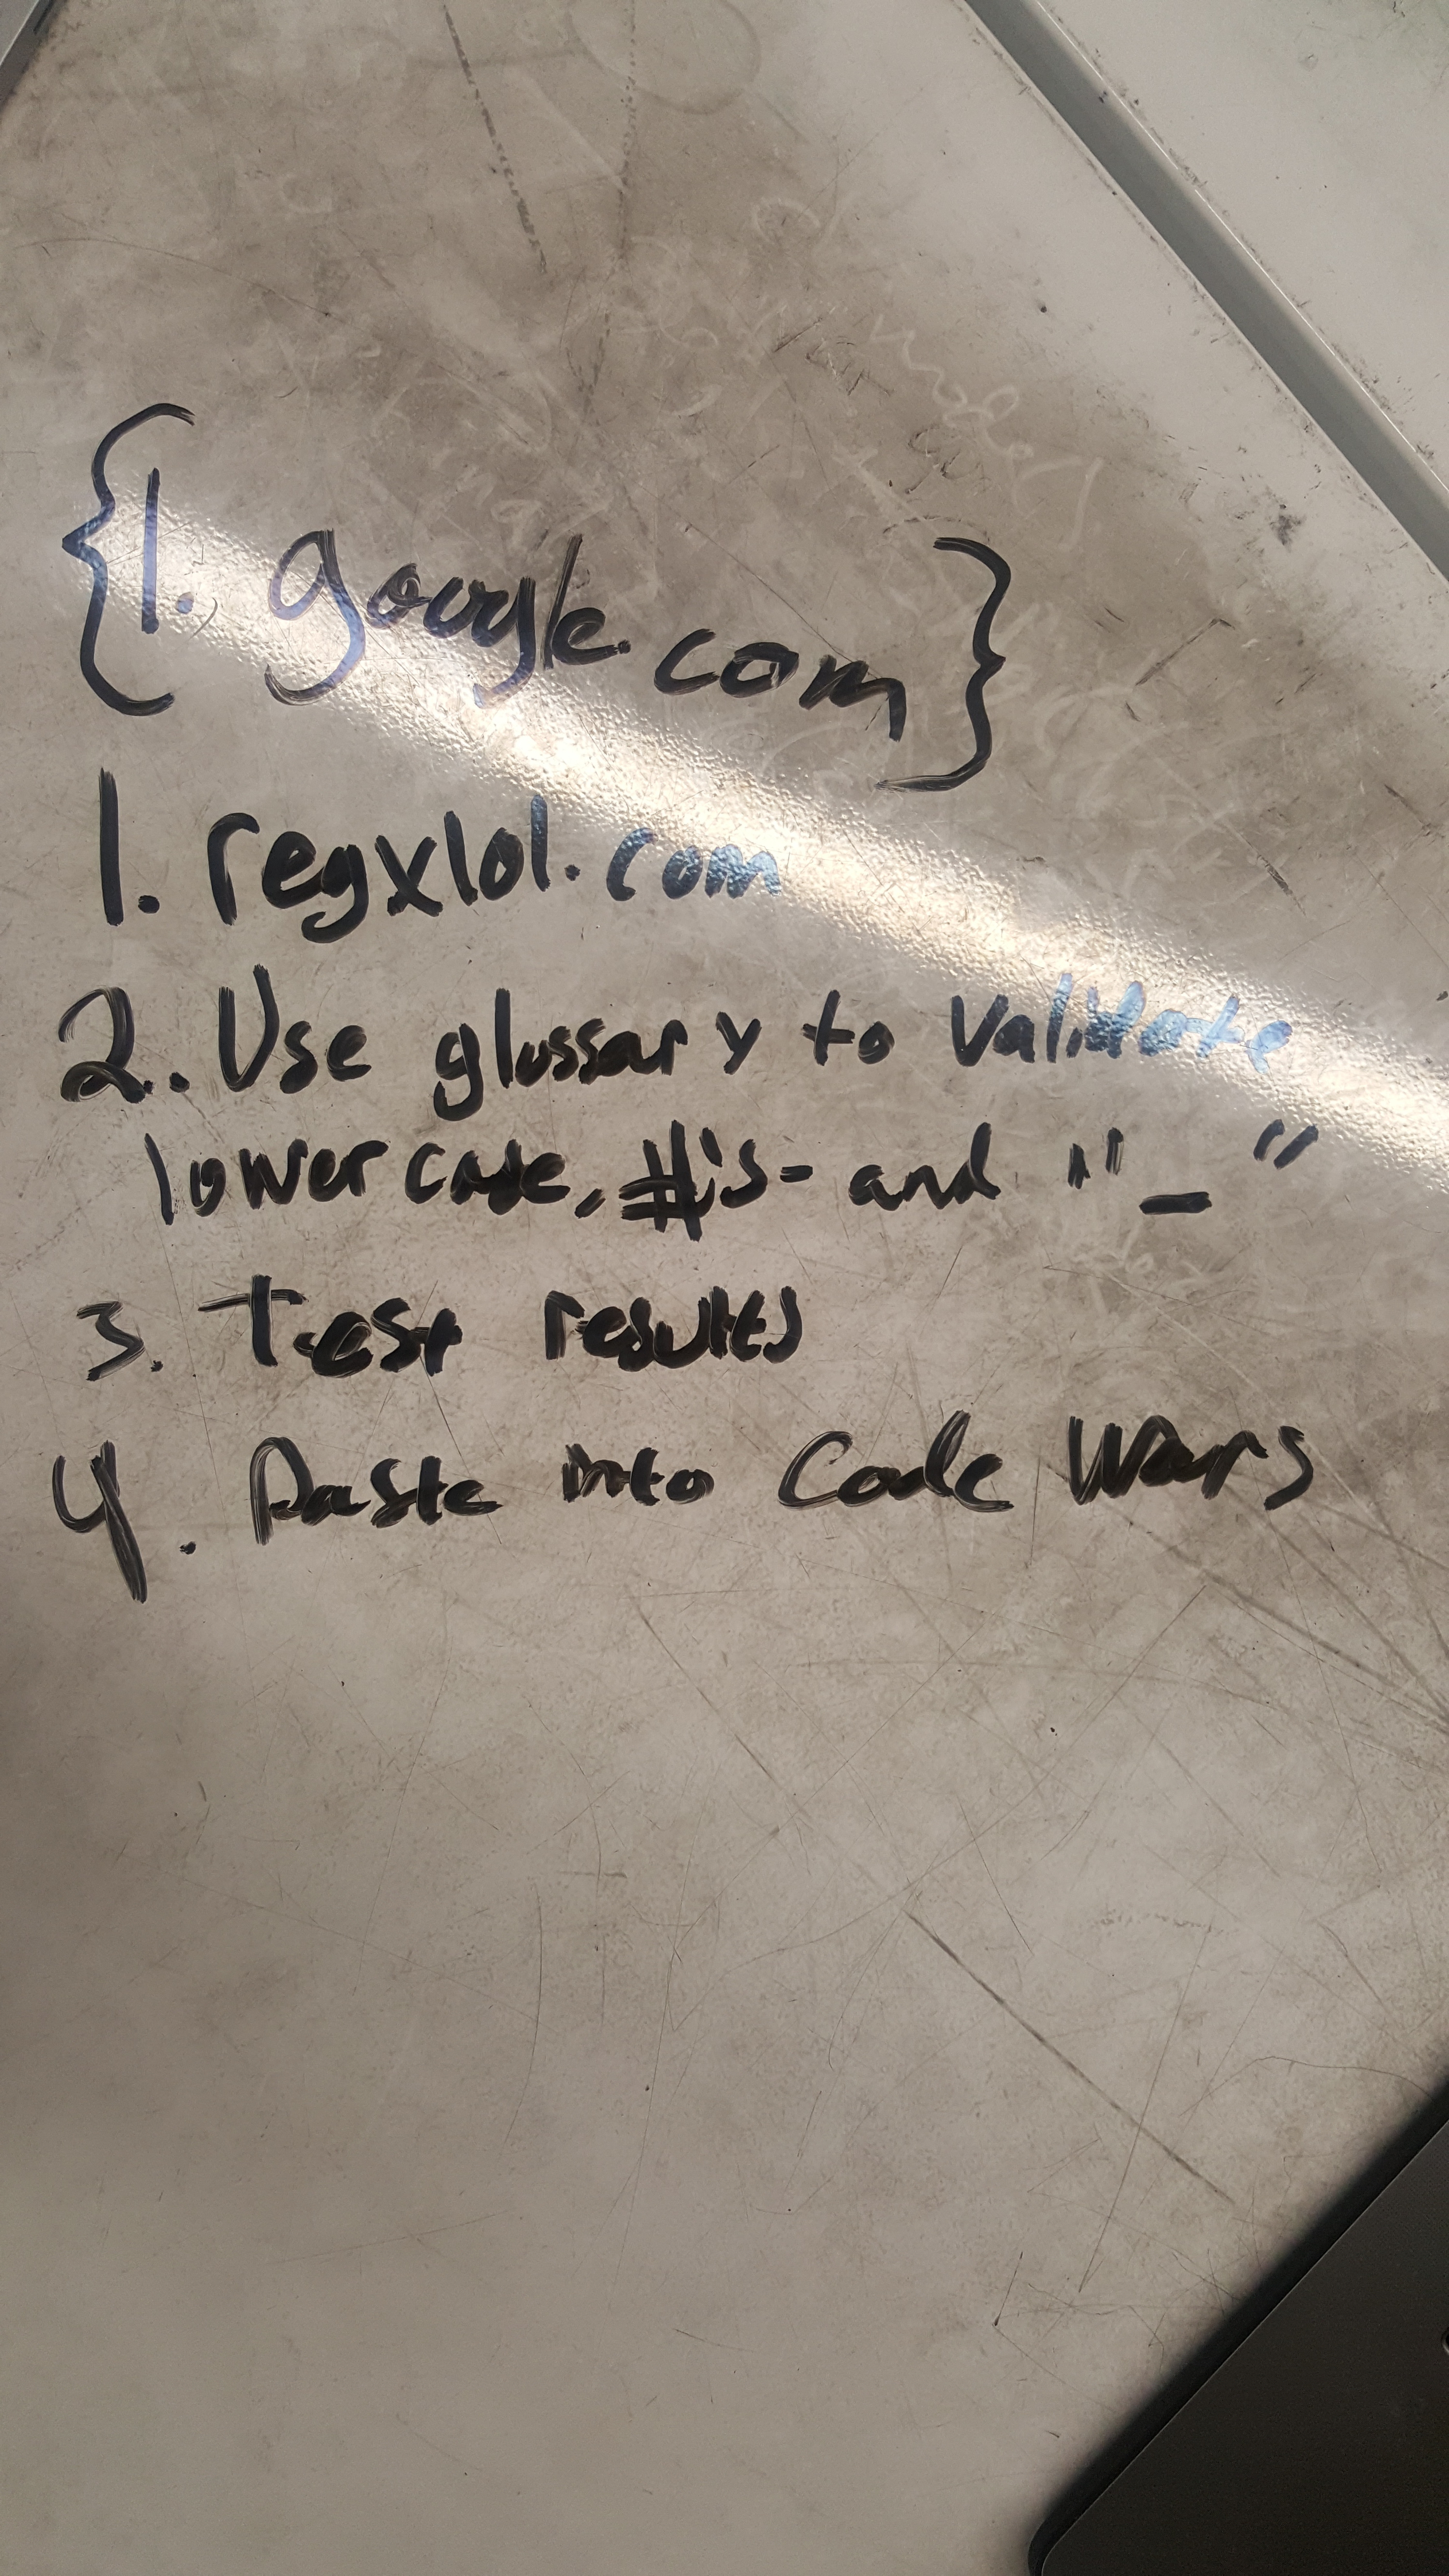 {1. google.com}
1. regxlol.com
2. Use glossary to validate
lowercase, #'s - and "_"
3. Test results
4. Paste into Code Wars